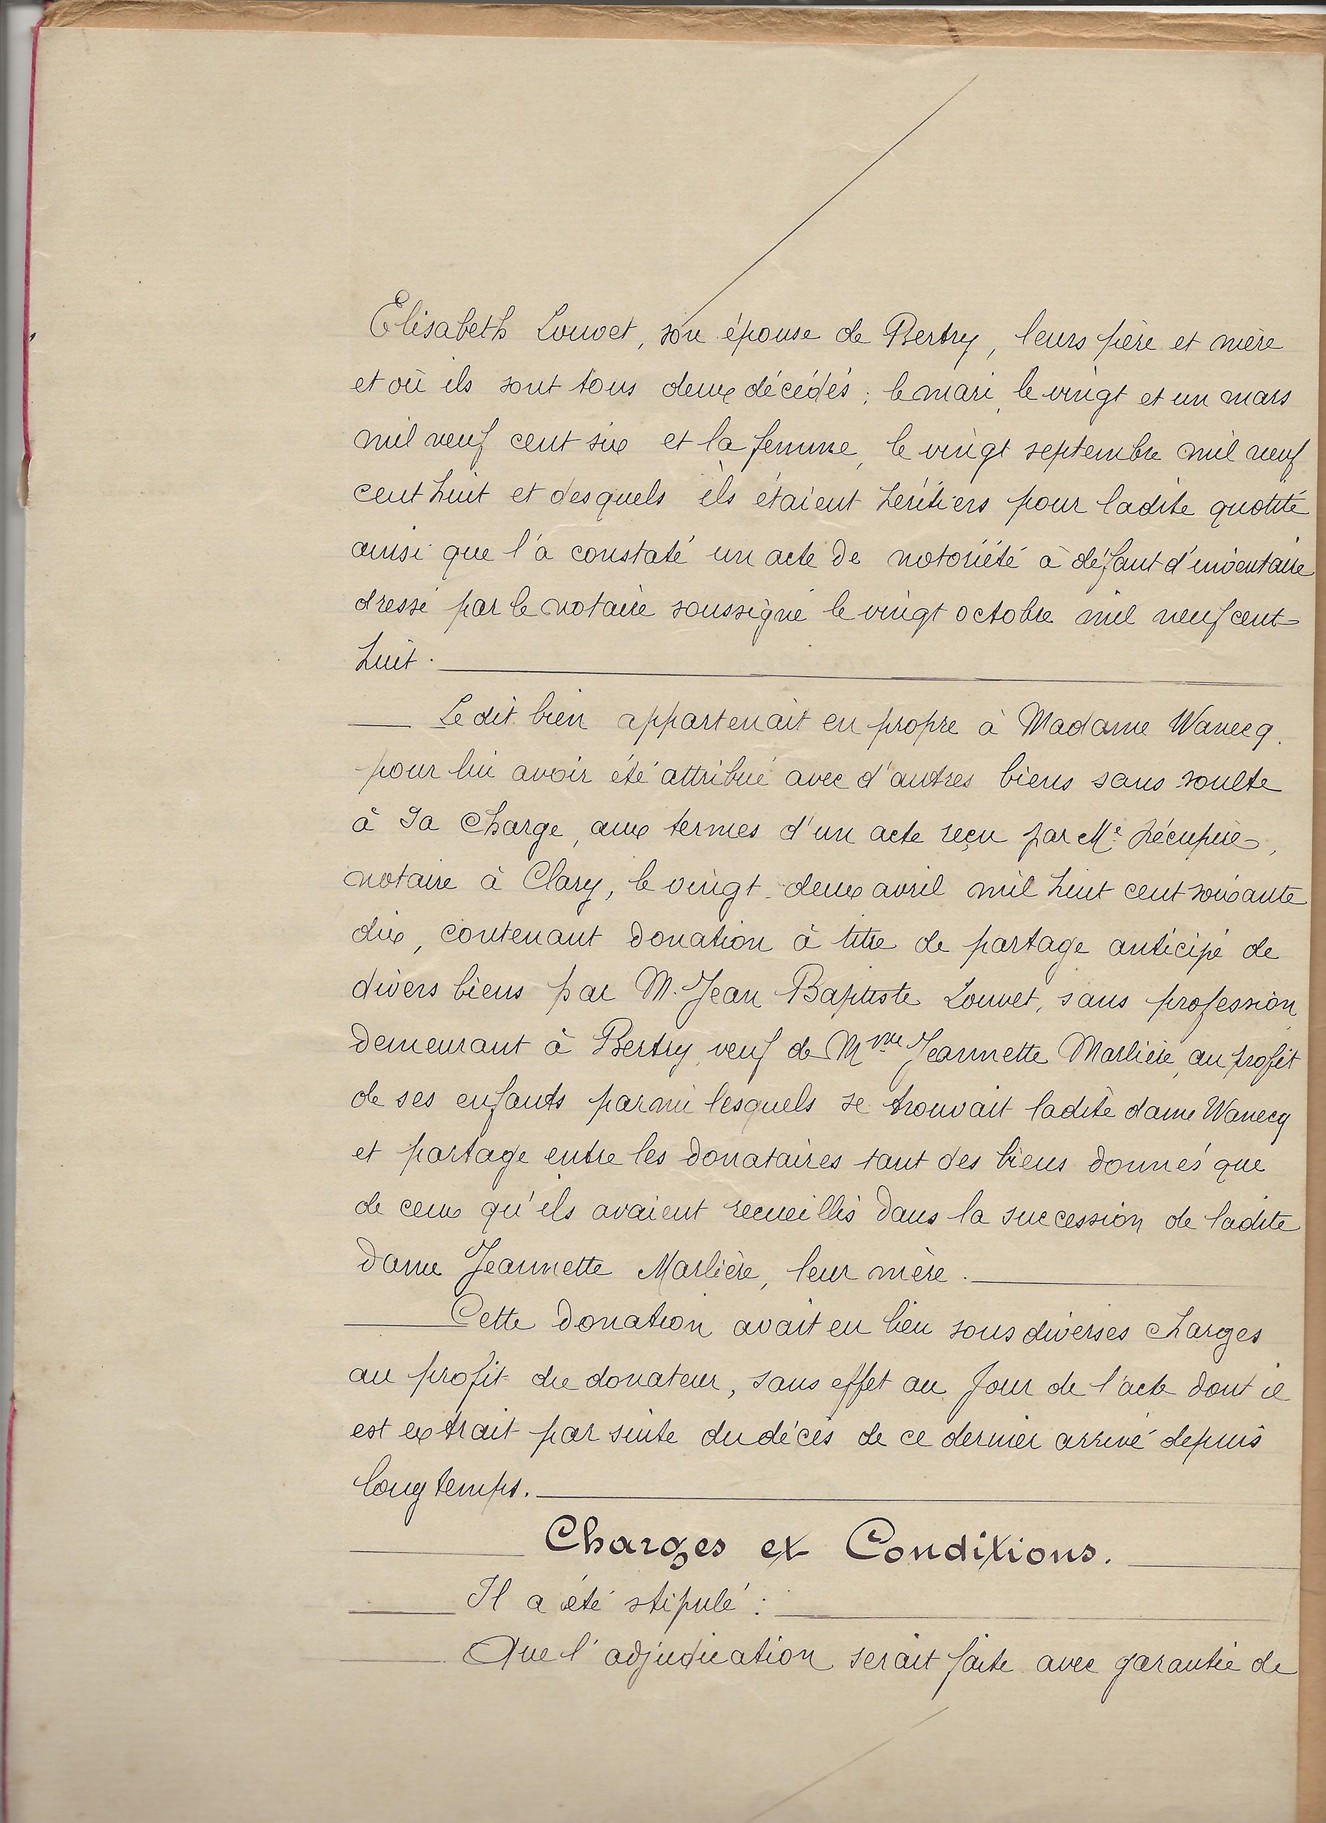 Elisabeth Louvet, son épouse de Bertry, leurs père et mère
et où ils sont tous deux décédés ; le mari, le vingt et un mars
mil neuf cent six et la femme, le vingt septembre mil neuf
cent huit et desquels ils étaient héritiers pour ladite quotité
ainsi que l'a constaté un acte de notoriété à défaut d'inventaire
dressé par le notaire soussigné le vingt octobre mil neuf cent-
huit.
Le dit bien appartenait en propre à Madame Wanecq.
pour lui avoir été attribué avec d'autres biens sans soulte
à sa charge, aux termes d'un acte reçu par Me
notaire à Clary, le vingt-deux avril mil huit cent soixante
dix, contenant donation à titre de partage anticipé de
divers biens par M. Jean Baptiste Louvet, sans profession,
demeurant à Bertry, veuf de Mme Jeannette Marlière, au profit
de ses enfants parmi lesquels se trouvait ladite dame Wanecq
et partage entre les donataires tant des biens donnés que
de ceux qu'ils avaient recueillis dans la succession de ladite
dame Jeannette Marlière, leur mère.
Cette donation avait eu lieu sous diverses charges
au profit du donateur, sans effet au jour de l'acte dont il
est extrait par suite du décès de ce dernier arrivé depuis
longtemps.
Charges et Conditions.
Il a été stipulé :
Que l'adjudication serait faite avec garantie de